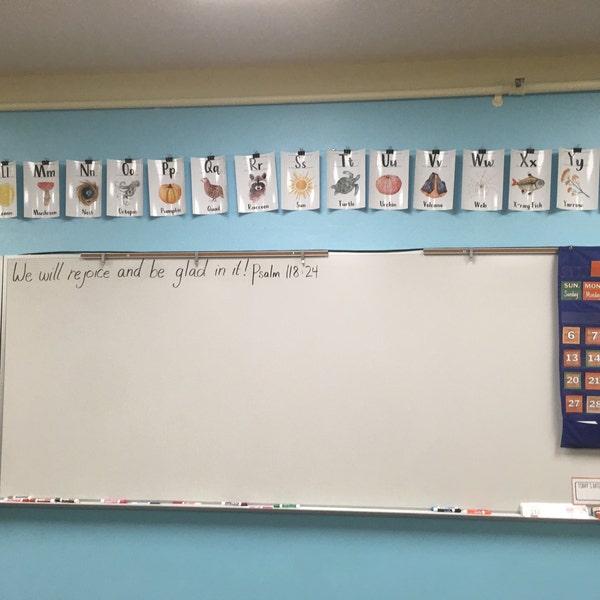 Mm
Mushroom
Nn
Nest
Oo
Octopus
Pp
Pumpkin
Qq
Quail
Rr
Raccoon
Ss
Sun
Tt
Turtle
Uu
Urchin
Vv
Volcano
Ww
Web
Xx
X-ray Fish
Yy
Yarrow
We will rejoice and be glad in it! Psalm 118:24
SUN. MON
Sunday Monday
6 7
13 14
20 21
27 28